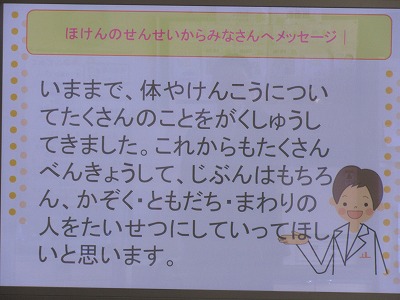 ほけんのせんせいからみなさんへメッセージ
いままで、体やけんこうについ
てたくさんのことをがくしゅうし
てきました。これからもたくさん
べんきょうして、じぶんはもちろ
ん、かぞく・ともだち・まわりの
人をたいせつにしていってほし
いと思います。